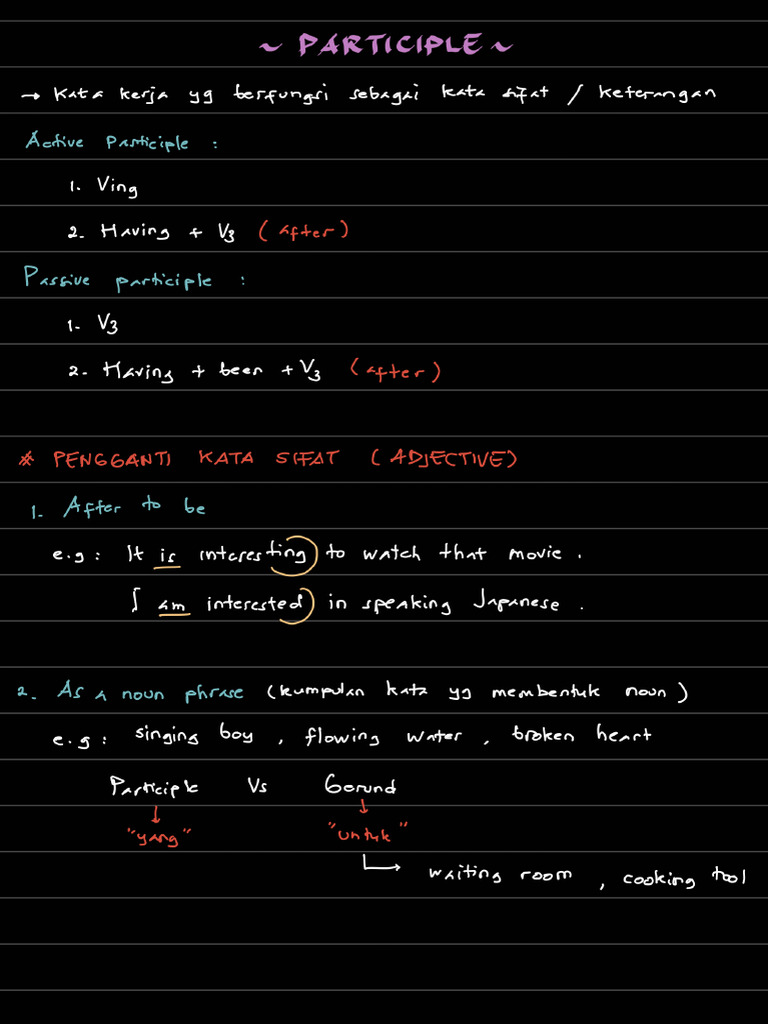 ~ PARTICIPLE ~
→ Kata kerja yg berfungsi sebagai kata sifat / keterangan
Active Participle :
1. Ving
2. Having + V3 (after)
Passive participle :
1. V3
2. Having + been + V3 (after)
* PENGGANTI KATA SIFAT (ADJECTIVE)
1. After to be
e.g : It is interesting to watch that movie .
I am interested in speaking Japanese .
2. As a noun phrase (kumpulan kata yg membentuk noun)
e.g : singing boy , flowing water , broken heart
Participle Vs Gerund
↓ ↓
"yang" "untuk"
→ waiting room , cooking tool